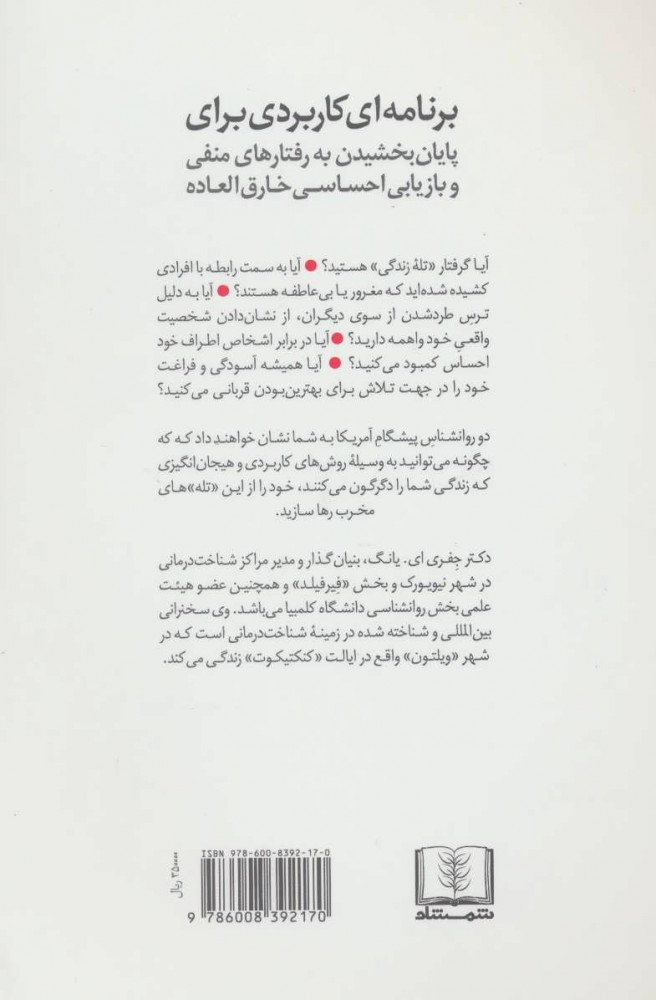 برنامه‌ای کاربردی برای
پایان بخشیدن به رفتارهای منفی
و بازیابی احساسی خارق العاده
آیا گرفتار «تلهٔ زندگی» هستید؟ ● آیا به سمت رابطه با افرادی
کشیده شده‌اید که مغرور یا بی‌عاطفه هستند؟ ● آیا به دلیل
ترسِ طردشدن از سوی دیگران، از نشان‌دادن شخصیت
واقعیِ خود واهمه دارید؟ ● آیا در برابر اشخاص اطراف خود
احساس کمبود می‌کنید؟ ● آیا همیشه آسودگی و فراغت
خود را در جهت تلاش برای بهترین‌بودن قربانی می‌کنید؟
دو روانشناسِ پیشگامِ آمریکا به شما نشان خواهند داد که که
چگونه می‌توانید به وسیلهٔ روش‌های کاربردی و هیجان‌انگیزی
که زندگی شما را دگرگون می‌کنند، خود را از این «تله»های
مخرب رها سازید.
دکتر جِفری ای. یانگ، بنیان‌گذار و مدیر مراکز شناخت‌درمانی
در شهر نیویورک و بخش «فِیرفیلد» و همچنین عضو هیئت
علمی بخش روانشناسی دانشگاه کلمبیا می‌باشد. وی سخنرانی
بین‌المللی و شناخته شده در زمینهٔ شناخت‌درمانی است که در
شهر «ویلتون» واقع در ایالت «کنکتیکوت» زندگی می‌کند.
ISBN 978-600-8392-17-0
9 786008 392170
ریال
شمشاد